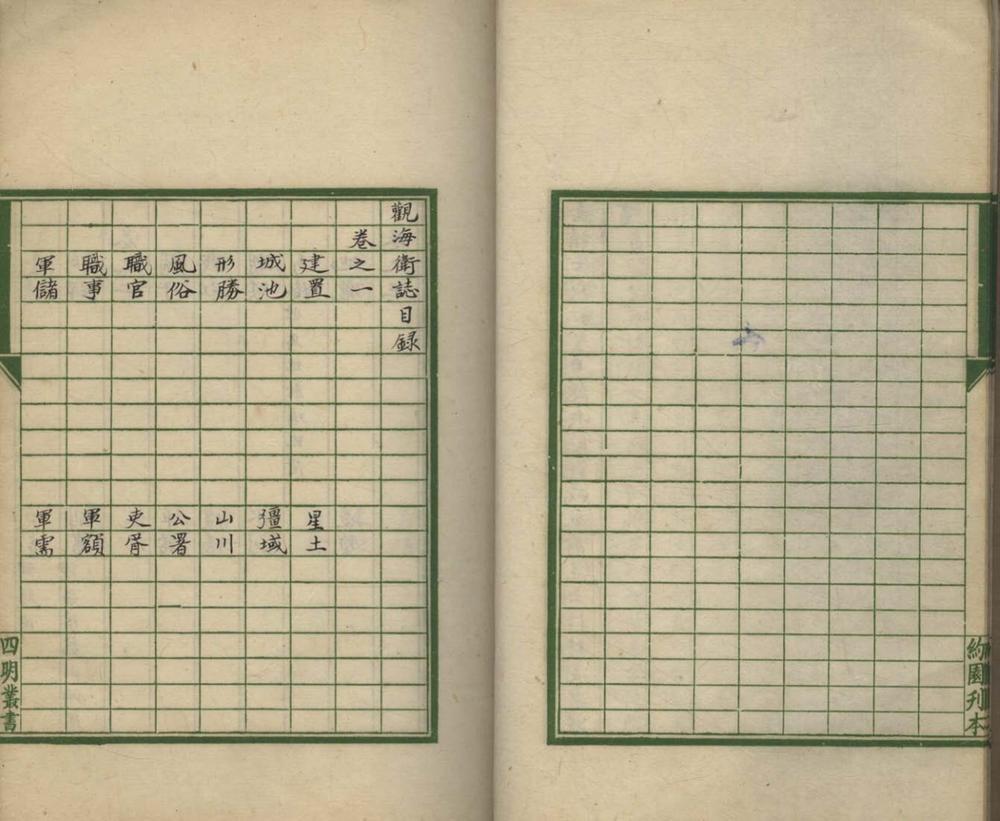 約園刊本
觀海衛誌目録
卷之一
建置 星土
城池 疆域
形勝 山川
風俗 公署
職官 吏胥
職事 軍額
軍儲 軍需
四明叢書